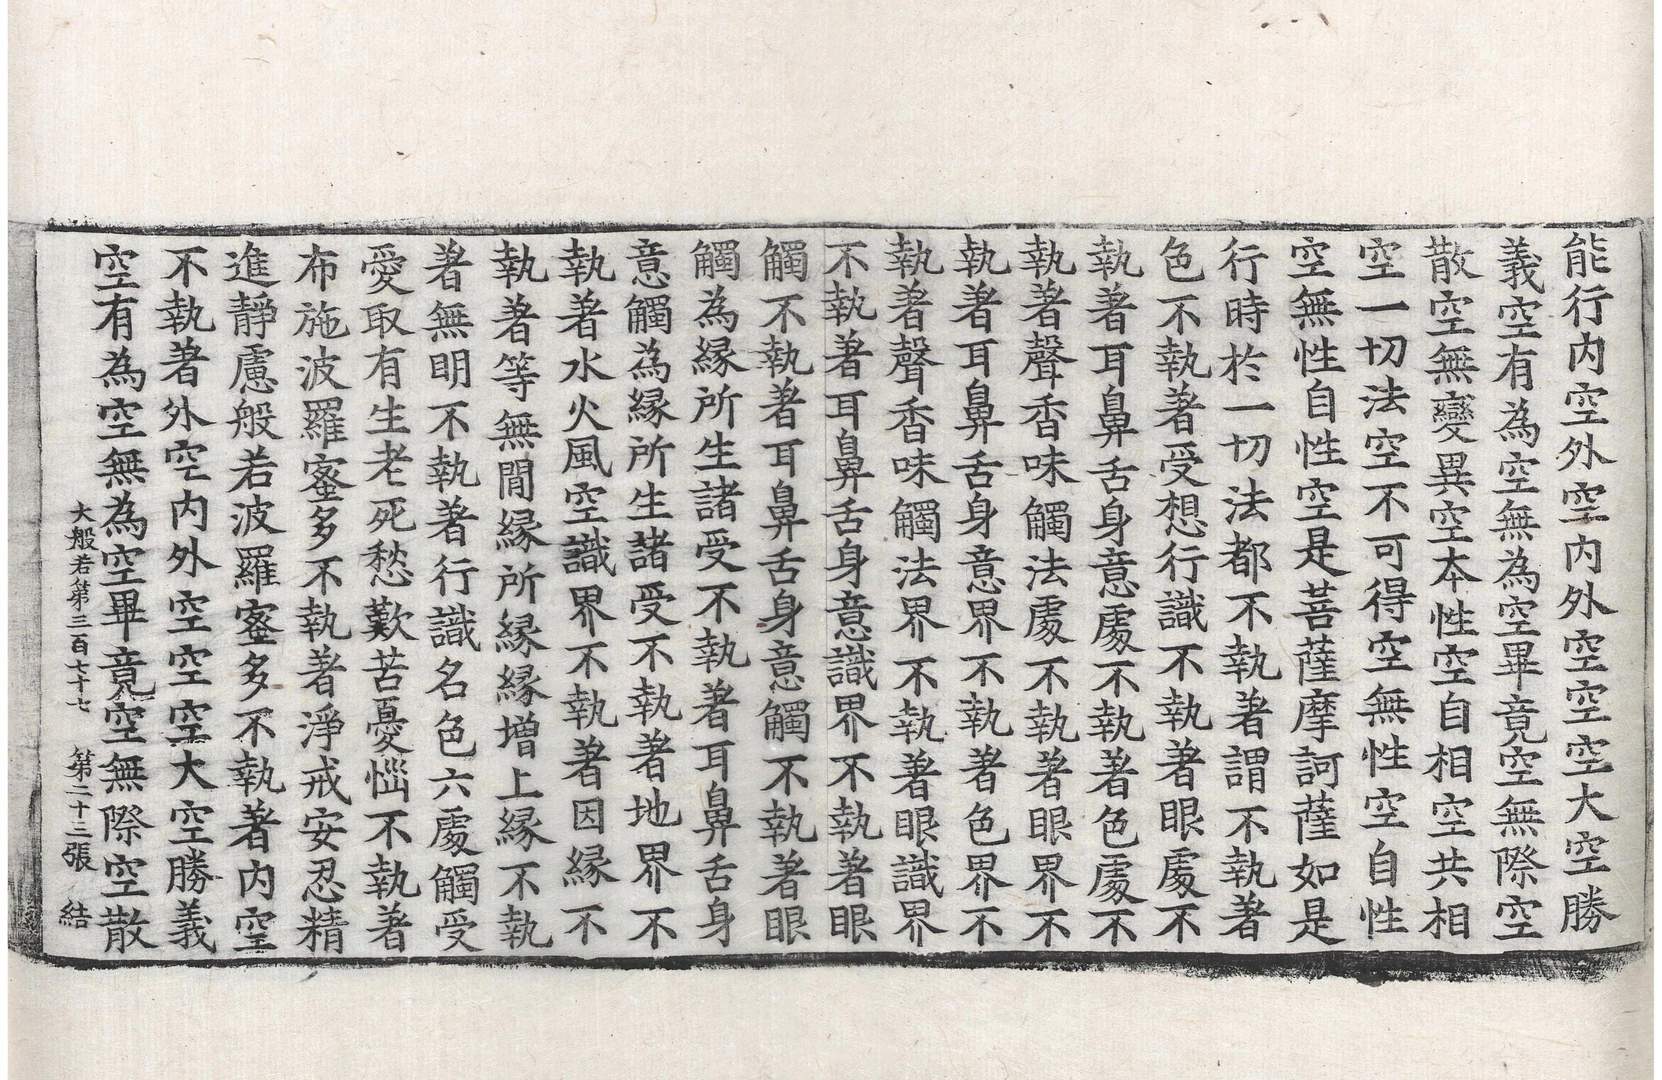 能行内空外空内外空空空大空勝
義空有為空無為空畢竟空無際空
散空無變異空本性空自相空共相
空一切法空不可得空無性空自性
空無性自性空是菩薩摩訶薩如是
行時於一切法都不執著謂不執著
色不執著受想行識不執著眼處不
執著耳鼻舌身意處不執著色處不
執著聲香味觸法處不執著眼界不
執著耳鼻舌身意界不執著色界不
執著聲香味觸法界不執著眼識界
不執著耳鼻舌身意識界不執著眼
觸不執著耳鼻舌身意觸不執著眼
觸為緣所生諸受不執著耳鼻舌身
意觸為緣所生諸受不執著地界不
執著水火風空識界不執著因緣不
執著等無間緣所緣緣增上緣不執
著無明不執著行識名色六處觸受
愛取有生老死愁歎苦憂惱不執著
布施波羅蜜多不執著淨戒安忍精
進靜慮般若波羅蜜多不執著内空
不執著外空内外空空空大空勝義
空有為空無為空畢竟空無際空散
大般若第三百七十七 第二十三張 結